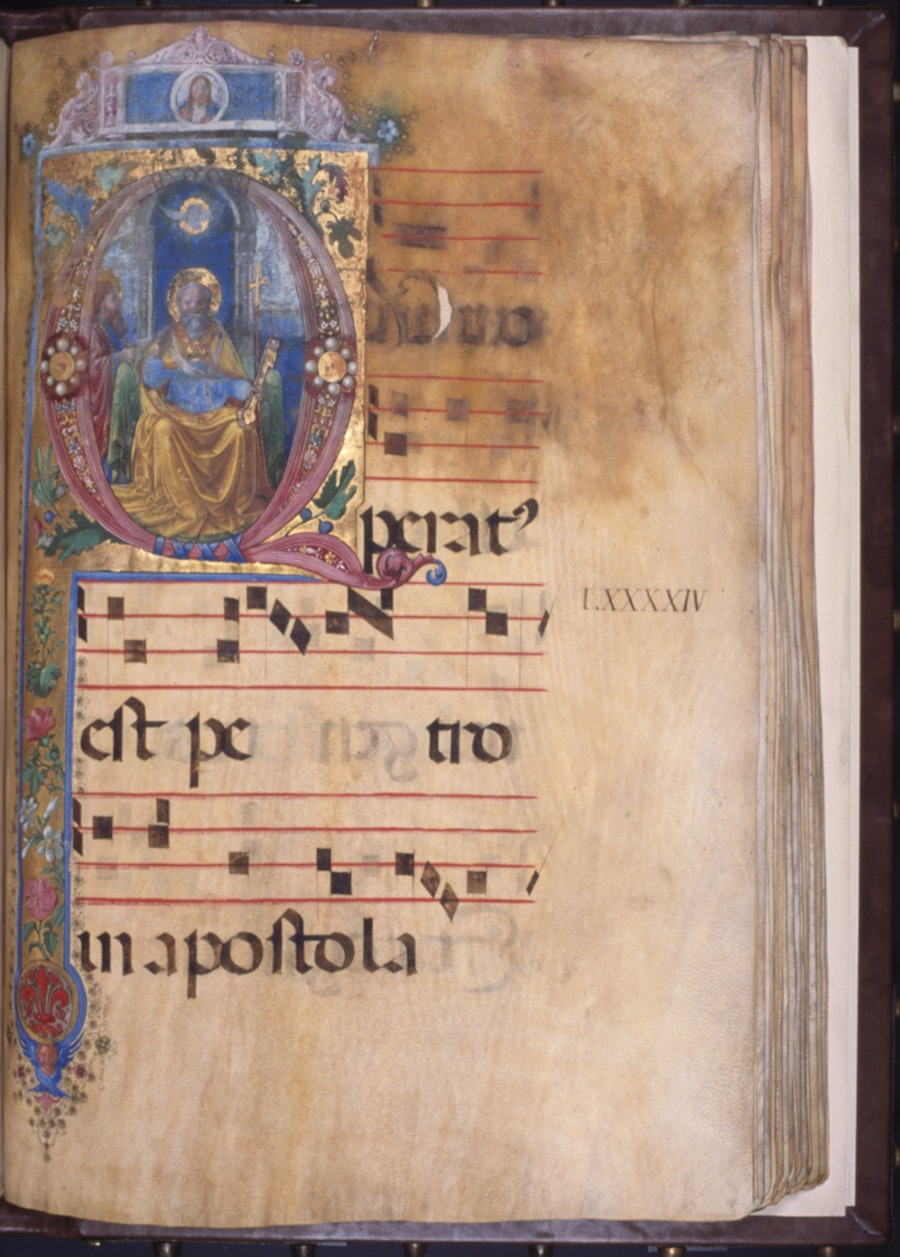 QVI o
peratꝰ
LXXXXIV
est pe tro
in apostola